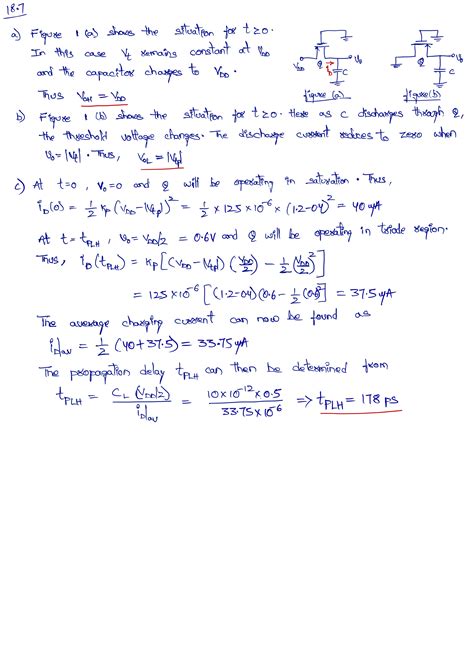 18.7
a) Figure 1 (a) shows the situation for t≥0.
In this case Vt remains constant at VDD
and the capacitor charges to VDD.
Thus VOH = VDD
VDD
Q
iD
C
vO
figure (a)
Q
C
vO
figure (b)
b) Figure 1 (b) shows the situation for t≥0. Here as C discharges through Q,
the threshold voltage changes. The discharge current reduces to zero when
vO = |Vtp|. Thus, VOL = |Vtp|
c) At t=0, vO=0 and Q will be operating in saturation. Thus,
iD(0) = 1/2 kp (VDD-|Vtp|)^2 = 1/2 × 125 × 10^-6 × (1.2-0.4)^2 = 40 μA
At t= tPLH, vO= VDD/2 = 0.6V and Q will be operating in triode region.
Thus, iD(tPLH) = kp [(VDD-|Vtp|) (VDD/2) - 1/2 (VDD/2)^2]
= 125 × 10^-6 [(1.2-0.4)(0.6 - 1/2 (0.6)^2] = 37.5 μA
The average charging current can now be found as
iD|av = 1/2 (40+37.5) = 33.75 μA
The propagation delay tPLH can then be determined from
tPLH = CL (VDD/2) / iD|av = 10×10^-12 × 0.5 / 33.75×10^-6 => tPLH = 178 ps